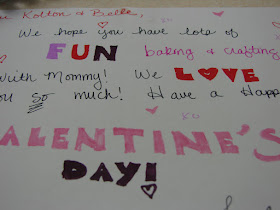 Kolton & Belle,
We hope you have lots of
FUN baking & crafting
with Mommy! We LOVE
you so much! Have a Happy
VALENTINE'S
DAY!